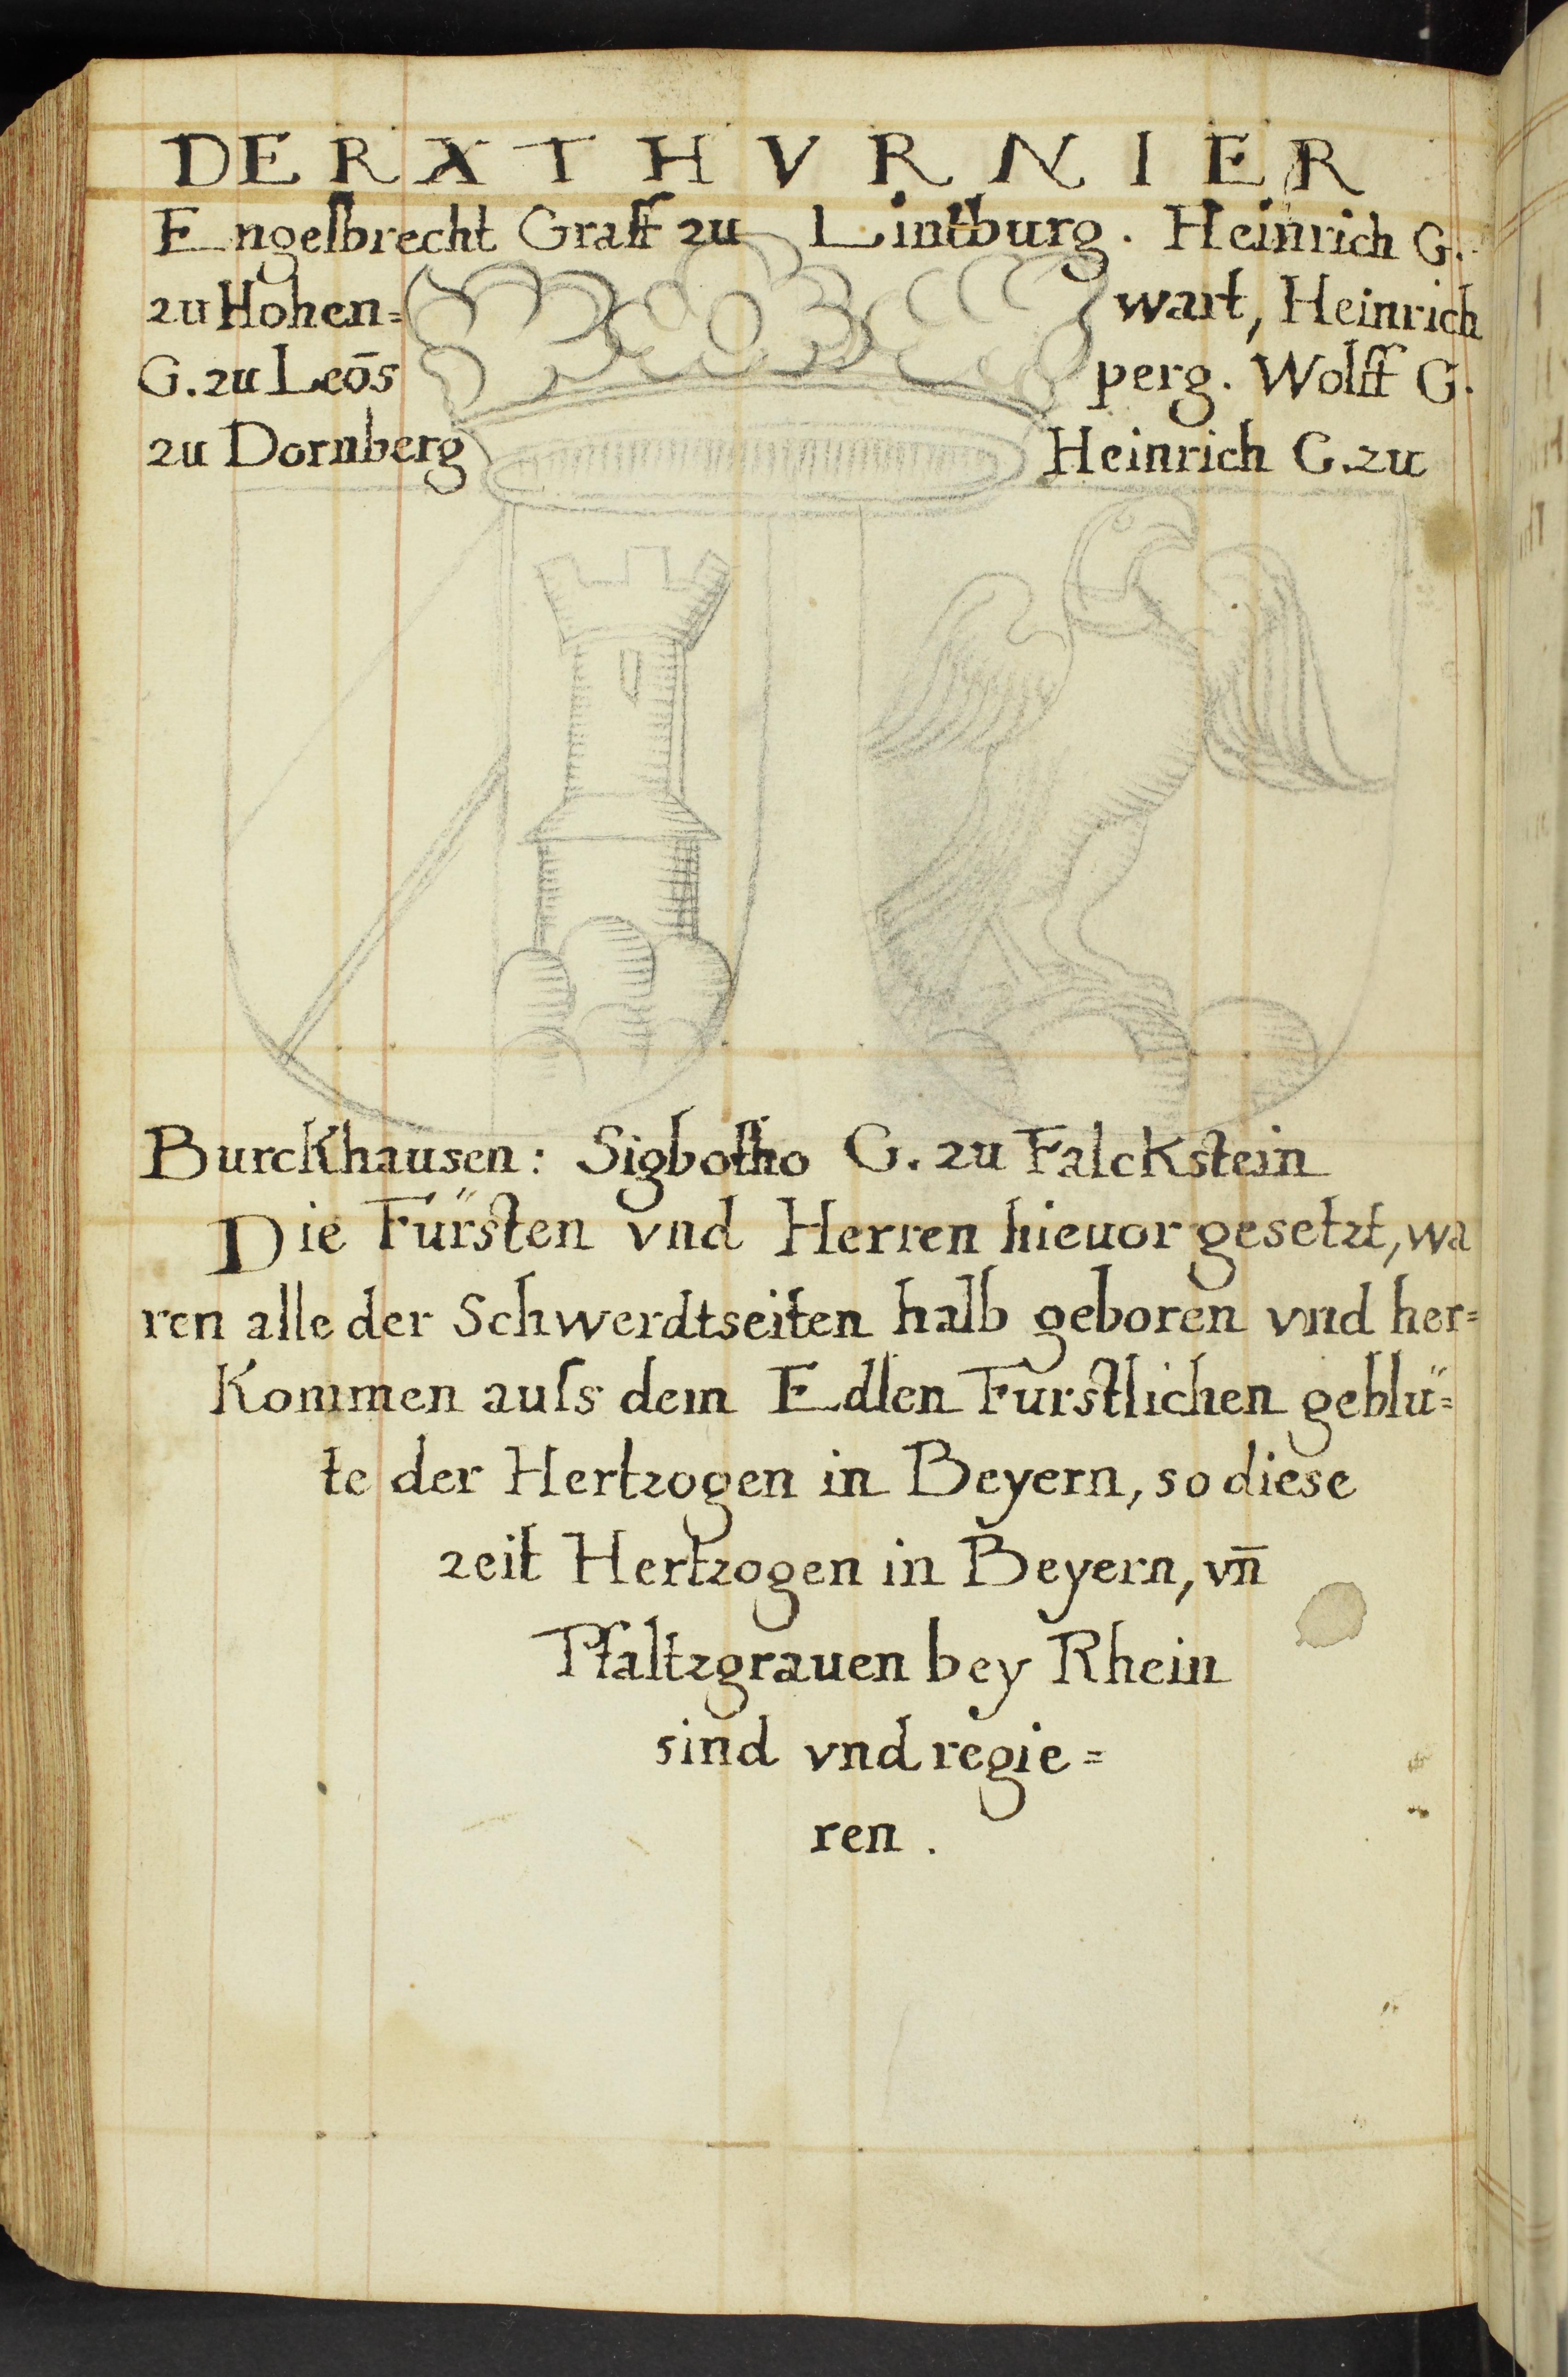 DER X THVRNIER
Engelbrecht Graff zu Lintburg. Heinrich G.
zu Hohen= wart, Heinrich
G. zu Leōs perg. Wolff G.
zu Dornberg Heinrich G. zu
Burckhausen: Sigbotho G. zu Falckstein
Die Fürsten vnd Herren hieuor gesetzt, wa
ren alle der Schwerdtseiten halb geboren vnd her=
kommen auſs dem Edlen Fürstlichen geblü=
te der Hertzogen in Beyern, so diese
zeit Hertzogen in Beyern, vn̄
Pfaltzgrauen bey Rhein
sind vnd regie=
ren.